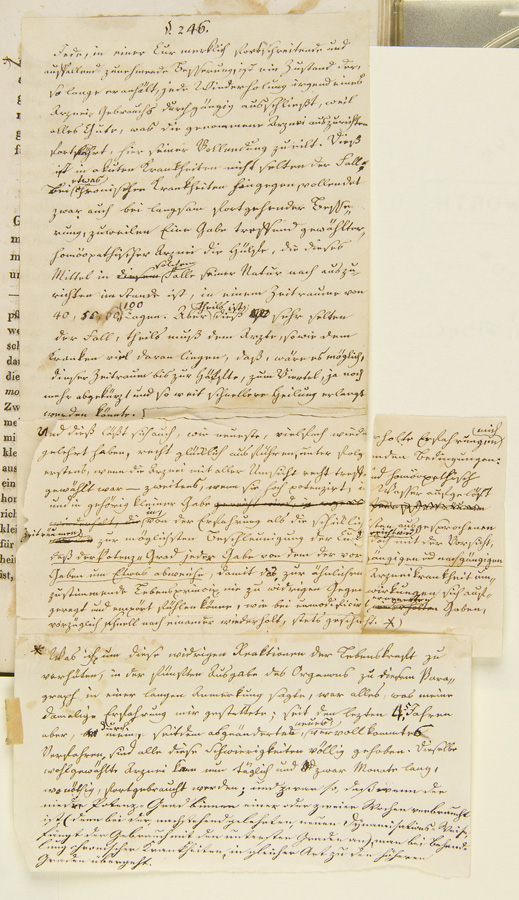 §. 246.
Jede, in einer Cur merklich fortschreitende und
auffallend zunehmende Besserung ist ein Zustand der,
so lange er anhält, jede Wiederholung irgend eines
Arznei-Gebrauchs durchgängig ausschließt, weil
alles Gute, was die genommene Arznei auszurichten
fortfährt, hier seiner Vollendung zueilt. Dieß
ist in acuten Krankheiten nicht selten der Fall;
bei etwas chronischen Krankheiten hingegen, vollendet
zwar auch bei langsam fortgehender Besse-
rung, zuweilen Eine Gabe treffend gewählter,
homöopathischer Arznei die Hülfe, die dieses
Mittel in diesem solchem Falle seiner Natur nach auszu-
richten im Stande ist, in einem Zeitraume von
40, 50, 60, 100 Tagen. Aber theils ist dieß sehr selten
der Fall, theils muß dem Arzte, so wie dem
Kranken viel daran liegen, daß, wäre es möglich,
dieser Zeitraum bis zur Hälfte, zum Viertel, ja noch
mehr abgekürzt und so weit schnellere Heilung erlangt
werden könnte.
Und dieß läßt sich auch, wie neueste, vielfach wieder
holte Erfahrungen mich
gelehrt haben, recht glücklich ausführen, unter folg
enden Bedingungen:
erstens, wenn die Arznei mit aller Umsicht recht treff
end homöopathisch
gewählt war — zweitens, wenn sie hoch potenzirt, i
n Wasser aufgelöst
und in gehörig kleiner Gabe
in von der Erfahrung als die schicklich
sten ausgesprochenen
Zeiträumen zur möglichsten Beschleunigung der Cur
gereicht wird, doch mit der Vorsicht,
daß der Potenz-Grad jeder Gabe von dem der vor
gängigen und nachgängigen
Gaben um Etwas abweiche, damit das zur ähnlichen
Arzneikrankheit um-
zustimmende Lebensprincip nie zu widrigen Gegen
wirkungen sich auf-
geregt und empört fühlen könne, wie bei unmodificirt
erneuerten Gaben,
vorzüglich schnell nach einander wiederholt, stets geschieht. *)
* Was ich, um diese widrigen Reaktionen der Lebenskraft zu
verhüten, in der fünften Ausgabe des Organons zu diesem Para-
graph in einer langen Anmerkung sagte, war alles, was meine
damalige Erfahrung mir gestattete; seit den letzten 4, 5 Jahren
aber, durch mein seitdem abgeändertes neues, vervollkommtes
Verfahren, sind alle diese Schwierigkeiten völlig gehoben. Dieselbe
wohlgewählte Arznei kann nun täglich und zwar Monate lang,
wo nöthig, fortgebraucht werden; und zwar so, daß wenn der
niedre Potenz-Grad binnen einer oder zweier Wochen verbraucht
ist (denn bei der nachstehend gelehrten, neuen Dynamisations-Weise,
fängt der Gebrauch mit den untersten Graden an) man bei Behand-
lung chronischer Krankheiten, in gleicher Art zu den höheren
Graden übergeht.